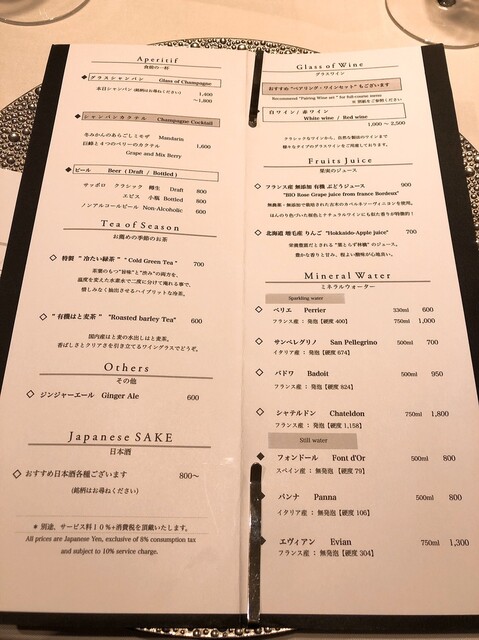 Aperitif
食前の一杯
グラスシャンパン Glass of Champagne
本日シャンパン(銘柄はお尋ねください) 1,400
～1,800
シャンパンカクテル Champagne Cocktail
冬みかんのあらごしミモザ Mandarin
巨峰と4つのベリーのカクテル 1,600
Grape and Mix Berry
ビール Beer (Draft / Bottled)
サッポロ クラシック 樽生 Draft 800
エビス 小瓶 Bottled 800
ノンアルコールビール Non-Alcoholic 600
Tea of Season
お薦めの季節のお茶
特別 “冷たい緑茶” “Cold Green Tea” 700
茶葉のもつ“旨味”と“渋み”の両方を、
温度を変えた水素水で二度に分けて淹れる事で、
惜しみなく抽出させるハイブリットな冷茶。
“有機はと麦茶” "Roasted barley Tea" 600
国内産はと麦の水出しはと麦茶。
香ばしさとクリアさを引き立てるワイングラスでどうぞ。
Others
その他
ジンジャーエール Ginger Ale 600
Japanese SAKE
日本酒
おすすめ日本酒各種ございます 800～
(銘柄はお尋ねください)
＊別途、サービス料10％+消費税を頂戴いたします。
All prices are Japanese Yen, exclusive of 8% consumption tax
and subject to 10% service charge.
Glass of Wine
グラスワイン
おすすめ “ペアリング・ワインセット” もございます
Recommened "Pairing Wine set" for full-course menu
※別紙をご参照ください
白ワイン / 赤ワイン
White wine / Red wine
1,000 ～ 2,500
クラシックなワインから、自然な製法のワインまで
様々なタイプのグラスワインをご用意しております。
Fruits Juice
果実のジュース
フランス産 無添加 有機 ぶどうジュース 900
"BIO Rose Grape juice from france Bordeux"
無農薬・無添加で栽培された古木のカベルネソーヴィニヨンを使用。
ほんのり色づいた桜色とナチュラルワインにも似た香りが特徴的！
北海道 増毛産 りんご "Hokkaido-Apple juice" 700
栄養豊富だとされる “葉とらず林檎” のジュース。
豊かな香りと甘み、程よい酸味が心地良い。
Mineral Water
ミネラルウォーター
Sparkling water
ペリエ Perrier 330ml 600
フランス産：発泡【硬度 400】 750ml 1,000
サンペレグリノ San Pellegrino 500ml 700
イタリア産：発泡【硬度 674】
バドワ Badoit 500ml 950
フランス産：発泡【硬度 824】
シャテルドン Chateldon 750ml 1,800
フランス産：発泡【硬度 1,158】
Still water
フォンドール Font d'Or 500ml 800
スペイン産：無発泡【硬度 79】
パンナ Panna 500ml 800
イタリア産：無発泡【硬度 106】
エヴィアン Evian 750ml 1,300
フランス産：無発泡【硬度 304】